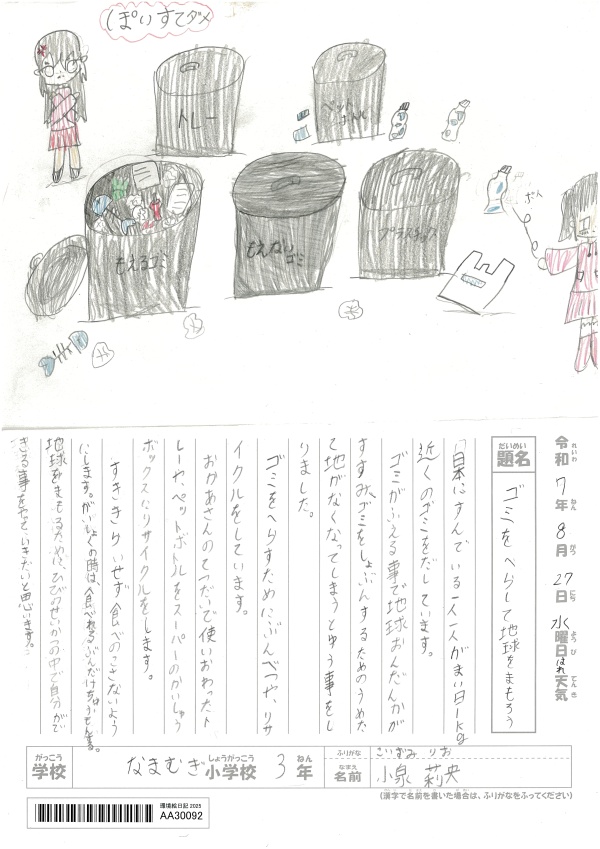 ぽいすてダメ
トレー
ペットボトル
もえるゴミ
もえないゴミ
プラスチック
ポイ
令和7年8月27日水曜日はれ天気
れいわ ねん がつ にち ようび てんき
だいめい
題名
ゴミをへらして地球をまもろう
日本にすんでいる一人一人がまい日1kg
近くのゴミをだしています。
ゴミがふえる事で地球おんだんかが
すすみ、ゴミをしょぶんするためのうめた
て地がなくなってしまうとゆう事をし
りました。
ゴミをへらすためにぶんべつや、リサ
イクルをしています。
おかあさんのてつだいで使いおわったト
レーやペットボトルをスーパーのかいしゅう
ボックスにリサイクルをします。
すききらいせず食べのこさないよう
にします。がいしょくの時は、食べれるぶんだけちゅうもんする。
地球をまもるために、ひびのせいかつの中で自分がで
きる事をやっていきたいと思います。
がっこう しょうがっこう ねん
学校 なまむぎ小学校 3年
ふりがな こいずみ りお
なまえ
名前 小泉 莉央
(漢字で名前を書いた場合は、ふりがなをふってください)
環境絵日記 2025
AA30092